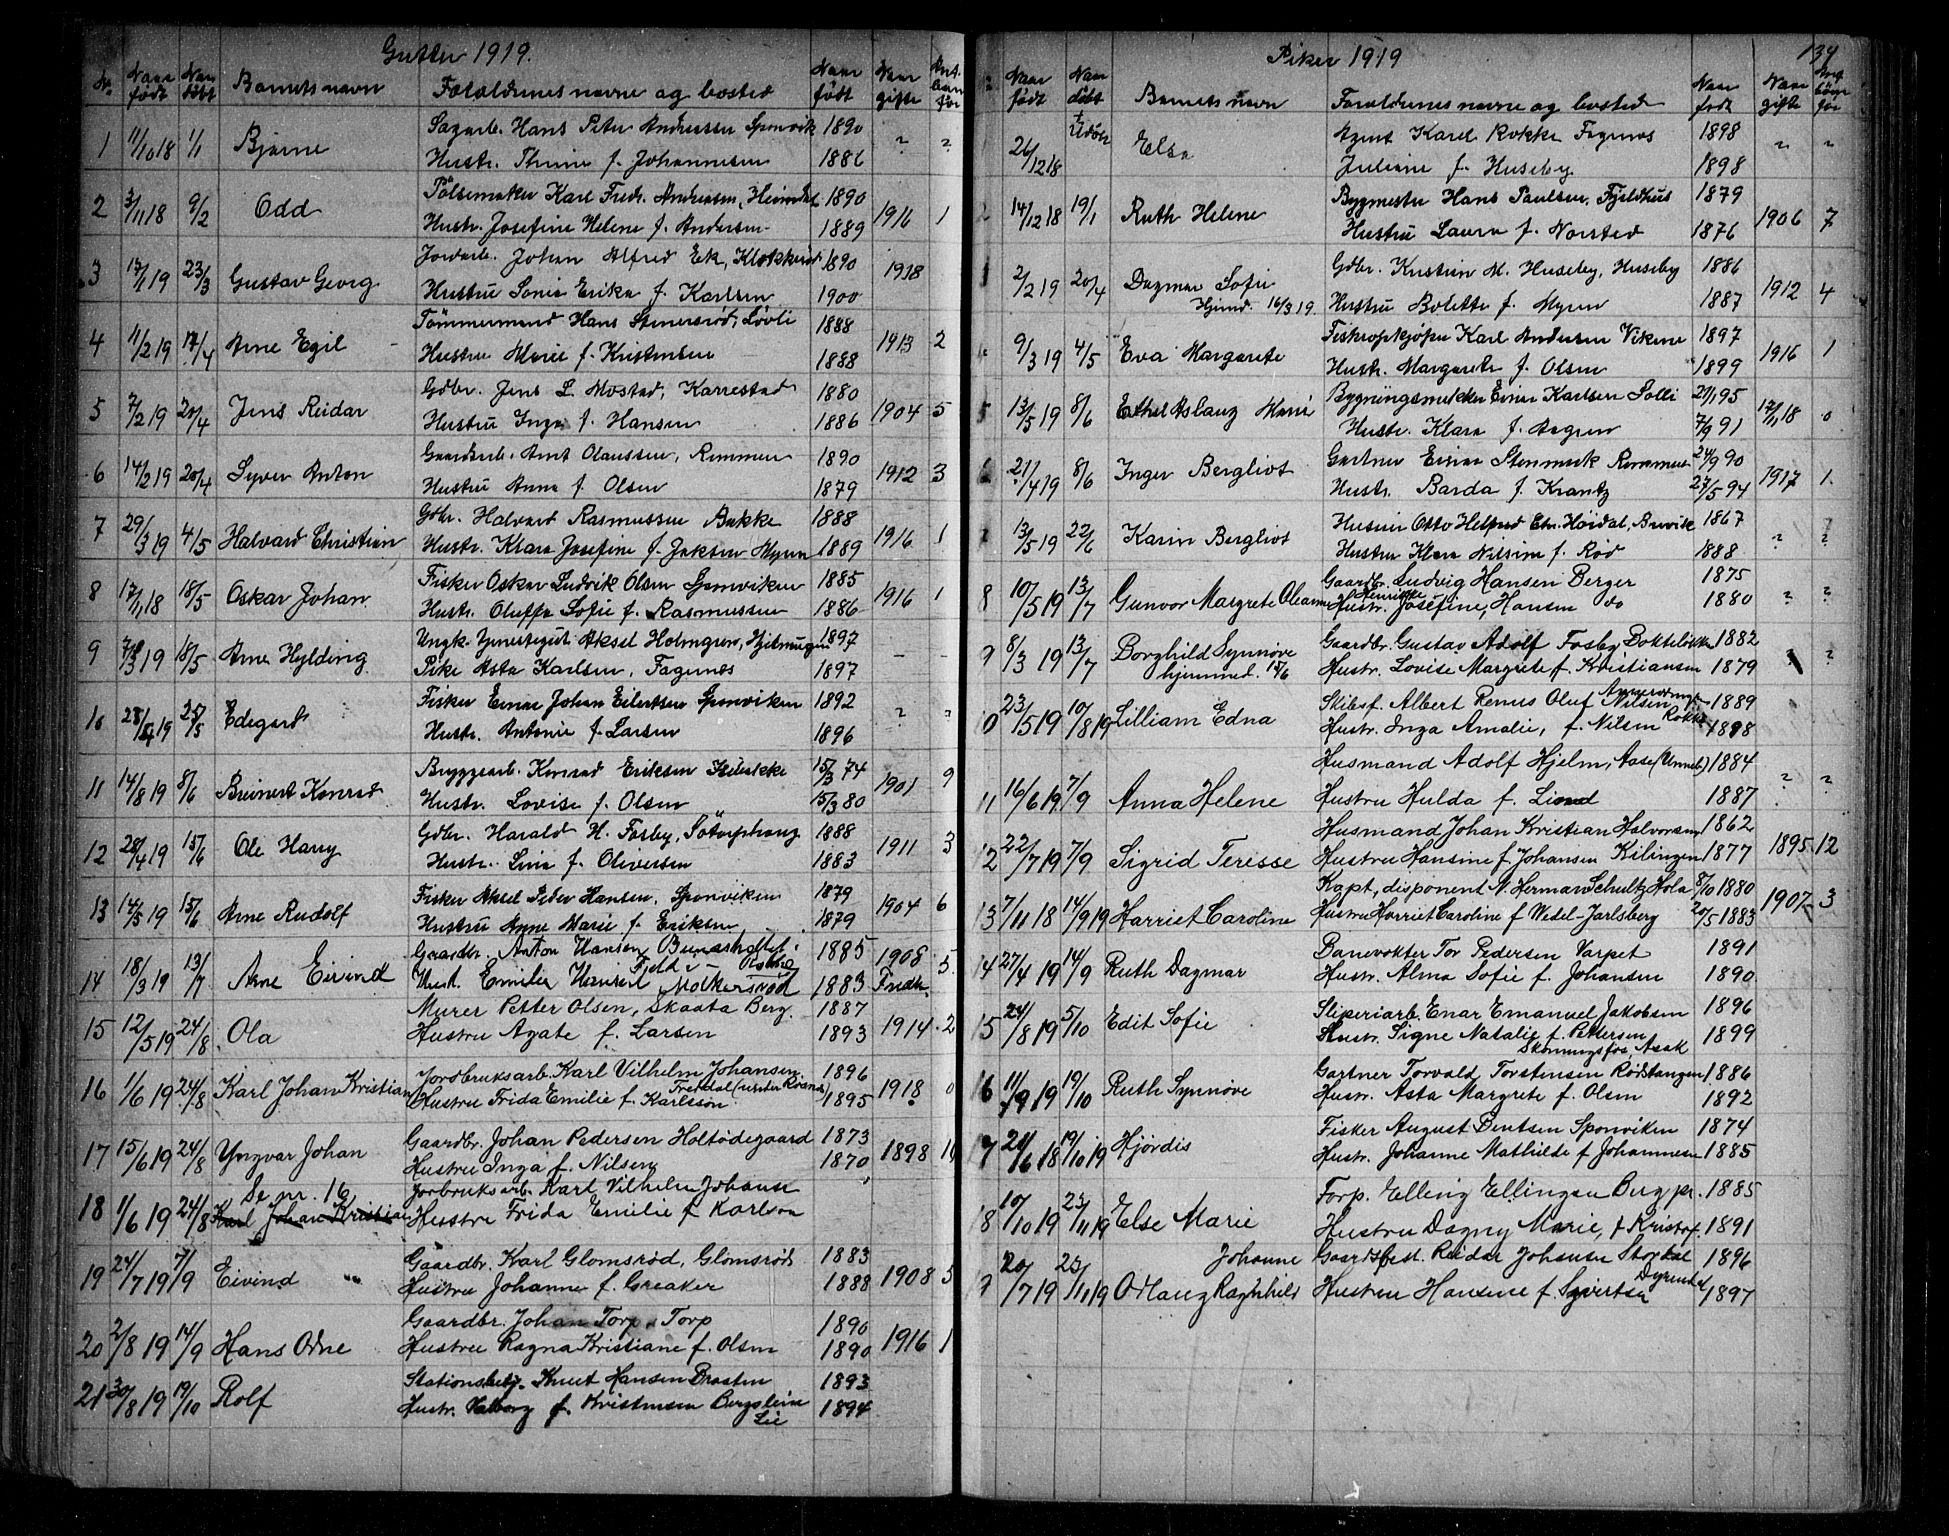 Gutter 1919.
No. Naar født Naar døbt Barnets navn Forældrenes navne og bosted Naar født Naar gifte Ant. barn før
1 11/10 18 1/1 Bjarne Sagarb. Hans Peter Andreassen Sponvik 1890 ? ?
Hustr. f. Johannesen 1886
2 3/11 18 9/2 Odd Pølsemaker Karl Fredr. Andreassen, Heimdal 1890 1916 1
Hustr. Josefine Helene f. Andersen 1889
3 17/1 19 23/3 Gustav Georg Jordarb. Johan Alfred Ek, Klokkerød 1890 1918
Hustru Sonia Erika f. Karlsen 1900
4 11/2 19 17/4 Arne Egil Tømmermand Hans Stenersrød, Løvli 1888 1913 2
Hustru Marie f. Kristensen 1888
5 7/2 19 20/4 Jens Reidar Gdbr. Jens L. Mostad, Karrestad 1880 1904 5
Hustru Inga f. Hansen 1886
6 14/2 19 20/4 Syver Anton Gaardarb. Amt Olaussen, Remmen 1890 1912 3
Hustru Anna f. Olsen 1879
7 29/3 19 4/5 Halvard Christian Gdbr. Halvard Rasmussen Bakke 1888 1916 1
Hustr. Klara Josefine f. Jaksen Myren 1889
8 17/11 18 18/5 Oskar Johan Fisker Oskar Ludvik Olsen Sponviken 1885 1916 1
Hustr. Oluffa Sofie f. Rasmussen 1886
9 7/3 19 18/5 Arne Hylding Ungk. Aksel Holmgren, 1897 — —
Pike Asta Karlsen, Fagernes 1897
10 28/4 19 25/5 Edegard Fisker Einar Johan Eilertsen Sponviken 1892 ? ?
Hustr. Antonie f. Larsen 1896
11 14/8 19 8/6 Konrad Bryggearb. Konrad Eriksen 15/3 74 1901 9
Hustr. Lovise f. Olsen 15/3 80
12 28/4 19 15/6 Ole Harry Gdbr. Harald H. Fosby, 1888 1911 3
Hustr. Lina f. Oliversen 1883
13 14/5 19 15/6 Arne Rudolf Fisker Aksel Peder Hansen, Sponviken 1879 1904 6
Hustru Anne Marie f. Eriksen 1879
14 18/3 19 13/7 Arne Eivind Gaardbr. Anton Hansen 1885 1908 5
Hust. Emilie 1883 Fredh.
15 12/5 19 24/8 Ola Murer Petter Olsen, Skaata Berg. 1887 1914 2
Hustru Agate f. Larsen 1893
16 1/6 19 24/8 Karl Johan Kristian Jordbruksarb. Karl Vilhelm Johansen. 1896 1918 0
Hustru Frida Emilie f. Karlsson 1895
17 15/6 19 24/8 Yngvar Johan Gaardbr. Johan Pedersen Holtødegaard 1873 1898 10
Hustru Inga f. Nilsen 1870
Se nr. 16
18 1/6 19 24/8 Karl Johan Kristian Jorbruksarb. Karl Vilhelm Johansen
Hustru Frida Emilie f Karlson
19 24/7 19 7/9 Eivind Gaardbr. Karl Glomsrød, Glomsrød 1883 1908 5
Hustru Johanne f. Greaker 1888
20 2/8 19 14/9 Hans Odne Gaardbr. Johan Torp, Torp 1890 1916 1
Hustru Ragna Kristiane f. Olsen 1890
21 30/8 19 19/10 Rolf Stationsbetj. Knut Hansen Braaten 1893
Hustr. Valborg f. Kristensen Bergsleine 1894
Lie
134
Piker 1919
Naar født Naar døbt Barnets navn Forældrenes navne og bosted Naar født Naar gifte Ant. børn før
26/12 18 Udøbt Elsa Agent Karel Rokke Fagernes 1898 " "
Juliane f. Huseby 1898
2 14/12 18 19/1 Ruth Helene Bygmester Hans Paulsen, Fjeldhus 1879 1906 7
Hustru Laura f. Norsted 1876
2/2 19 20/4 Dagmar Sofie Gdbr. Kristian M. Huseby, Huseby 1886 1912 4
Hjemd. 16/3 19. Hustru Bolette f. Myren 1887
9/3 19 4/5 Eva Margarete Fiskeopkjøper Karl Andersen Vikene 1897 1916 1
Hustr. Margarete f. Olsen 1899
5 13/5 19 8/6 Ethel Aslaug Marie Bygningssnekker Einar Karlsen Solli 20/1 95 17/11 18 0
Hustr. Klara f. Aagren 7/9 91
6 21/4 19 8/6 Inger Bergliot Gartner Einar Stenmark Remmen 24/9 90 1917 1.
Hustr. Barda f. Krantz 27/5 94
7 13/5 19 22/6 Karin Bergliot Husmn Otto Chr. Høidal, Buvik 1867 ? ?
Hustru Klara Nilsine f. Rød 1888
8 10/5 19 13/7 Gunvor Margrete Oleanne Gaardbr. Ludvig Hansen Berger 1875 ? ?
Hustr. Henrikke Josefine, Hansen do 1880
9 8/3 19 13/7 Borghild Synnøve Gaardbr. Gustav Adolf Fosby 1882 ?
hjemmed. 15/6 Hustr. Lovise Margrete f. Kristiansen 1879
10 23/5 19 10/8 19 Lilliam Edna Skibsf. Albert Remus Oluf Nilsen 1889
Hustr. Inga Amalie, f. Nilsen Rokke 1898
11 16/6 19 7/9 Anna Helene Husmand Adolf Hjelm, Aase 1884 ? ?
Hustru Hulda f. Liond 1887
12 22/7 19 7/9 Sigrid Teresse Husmand Johan Kristian Halvorsen 1862 1895 12
Hustru Hansine f Johansen Kilingen 1877
13 7/11 18 14/9 19 Harriet Caroline Kapt, disponent N. Herman Schultz Hola 8/10 1880 1907 3
Hustru Harriet Caroline f Wedel-Jarlsberg 20/5 1883
14 27/4 19 14/9 Ruth Dagmar Banevokter Tor Pedersen Varpet 1891
Hustr. Alma Sofie f. Johansen 1890.
15 24/8 19 5/10 Edit Sofie Sliperiarb. Enar Emanuel Jakobsen 1896
Hustr. Signe Natalie f. Pettersen 1899
Skonningsfos, Asak
16 11/9 19 19/10 Ruth Synnøve Gartner Torvald Torstensen Rødstangen 1886
Hustr. Asta Margrete f. Olsen 1892
17 21/6 18 19/10 19 Hjørdis Fisker August Bentsen Sponviken 1874
Hustr. Johanne Mathilde f Johannesen 1885
18 10/10 19 23/11 19 Else Marie Forp. Elling Ellingsen Berg pr. 1885
Hustru Dagny Marie, f Kristof. 1891
19 20/7 19 23/11 19 Johanne Odlaug Raghnhild Gaardsbest. Reidar Johansen Skogdal 1896
Hustru Hansine f. Syvertsen 1897